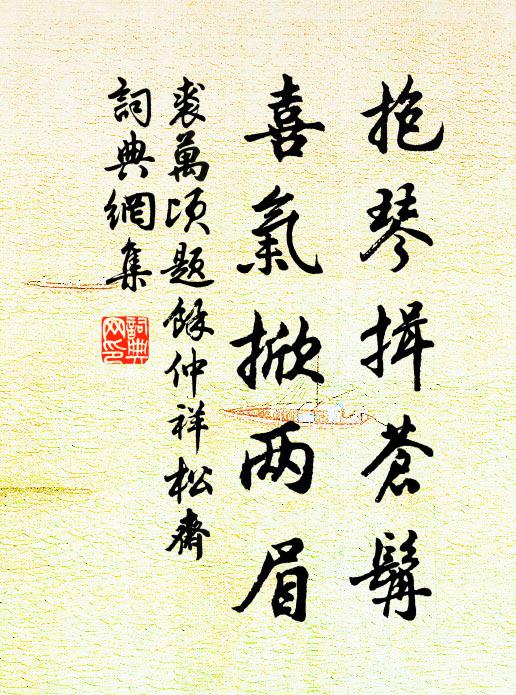 抱琴揖蒼髯
喜氣掀两眉
裘萬頃题餘仲祥松齋
詞典網集
詞典网印